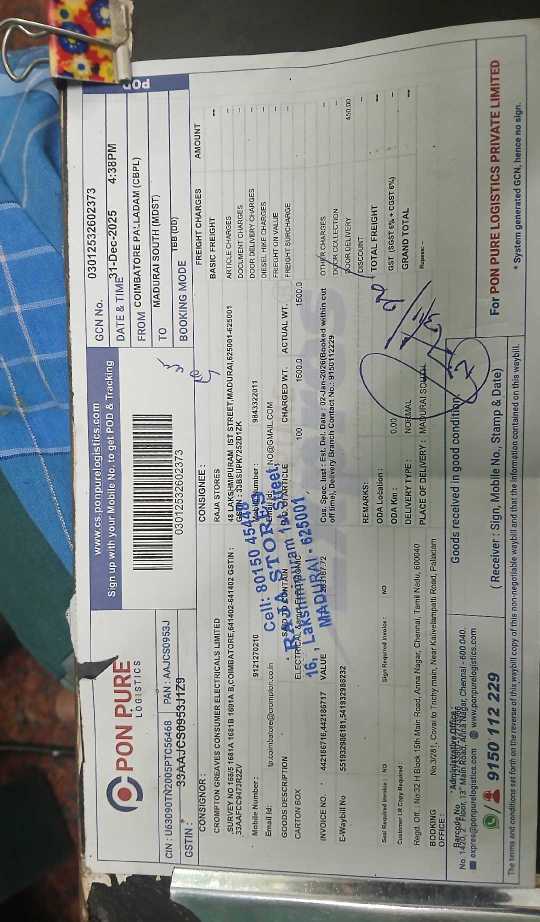 PON PURE
LOGISTICS
www.cs.ponpurelogistics.com
Sign up with your Mobile No. to get POD & Tracking
03012532602373
POD
GCN No. 03012532602373
DATE & TIME 31-Dec-2025 4:38PM
FROM COIMBATORE PALLADAM (CBPL)
TO MADURAI SOUTH (MDST)
BOOKING MODE TBB (DD)
CIN : U63090TN2005PTC056468 PAN : AAJCS0953J
GSTIN : 33AAJCS0953J1Z9
CONSIGNOR :
CROMPTON GREAVES CONSUMER ELECTRICALS LIMITED
Mobile Number : 9121270210
Email Id: tp.coimbatore@crompton.co.in
CONSIGNEE :
RAJA STORES
48 LAKSHMIPURAM IST STREET,MADURAI,625001-625001
Mobile Number : 9843322011
Cell: 80150 45448
RAJA STORES
16, Lakshmipuram 1st Street,
MADURAI - 625001
GOODS DESCRIPTION
CARTON BOX
CHARGED WT. ACTUAL WT.
100 1500.0 1500.0
INVOICE NO. 442186716,442186717 VALUE
E-Waybill No 551932986181,541932986232
Cus. Spec. Inst : Est. Del. Date : 02-Jan-2026(Booked within cut
off time), Delivery Branch Contact No.: 9150112229
FREIGHT CHARGES AMOUNT
BASIC FREIGHT --
ARTICLE CHARGES --
DOCUMENT CHARGES --
DOOR DELIVERY CHARGES --
DIESEL HIKE CHARGES --
FREIGHT ON VALUE --
FREIGHT SURCHARGE --
OTHER CHARGES --
DOOR COLLECTION --
DOOR DELIVERY 450.00
DISCOUNT --
TOTAL FREIGHT --
GST (SGST 6% + CGST 6%) --
GRAND TOTAL --
Rupees: -
REMARKS:
ODA Location :
ODA Km : 0.00
DELIVERY TYPE : NORMAL
PLACE OF DELIVERY : MADURAI SOUTH
Seal Required Invoice : NO Sign Required Invoice : NO
Customer LR Copy Required :
Regd. Off. : No:32 H Block 15th Main Road, Anna Nagar, Chennai, Tamil Nadu, 600040
BOOKING OFFICE : No.3/281, Covai to Trichy main, Near Kalivelampatti Road, Palladam
Administrative Office :
expres@ponpurelogistics.com www.ponpurelogistics.com
9150 112 229
Goods received in good condition
( Receiver : Sign, Mobile No., Stamp & Date)
For PON PURE LOGISTICS PRIVATE LIMITED
* System generated GCN, hence no sign.
The terms and conditions set forth on the reverse of this waybill copy of this non-negotiable waybill and that the information contained on this waybill.